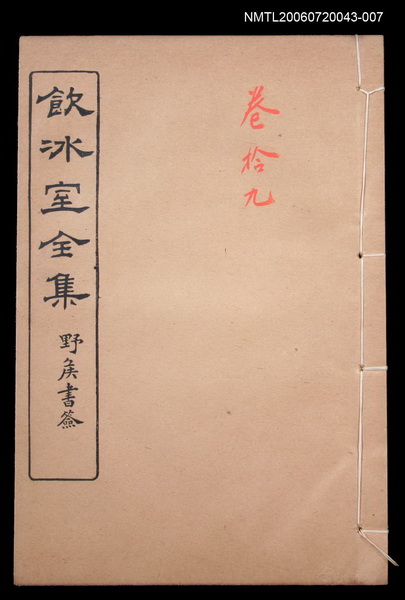 NMTL20060720043-007
卷拾九
飲冰室全集
野矦書簽